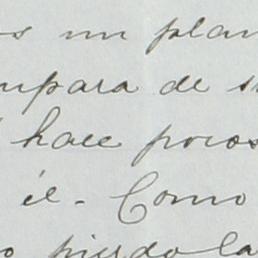 os un plan
mpara de s
hace pocos
él. Como
o pierdo la